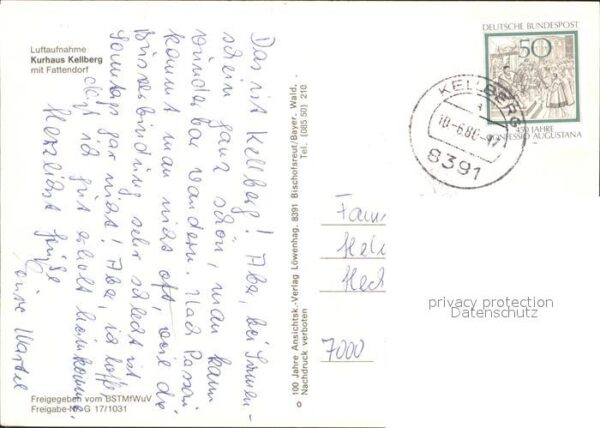 Luftaufnahme
Kurhaus Kellberg
mit Fattendorf
Das ist Kellberg! Aber, bei Sonnen-
schein ganz schön, man kann
wunderbar wandern. Nach Passau
kommt man nicht oft, weil die
Busverbindung sehr schlecht ist,
Sonntags gar nicht! Aber, ich hoffe,
daß ich gut erholt heimkomme.
Herzlichst Grüße
Freigegeben vom BSTMfWuV
Freigabe-Nr. G 17/1031
© 100 Jahre Ansichtsk.-Verlag Löwenhag. 8391 Bischofsreut/Bayer. Wald.
Nachdruck verboten Tel. (085 50) 210
DEUTSCHE BUNDESPOST
50
450 JAHRE
CONFESSIO AUGUSTANA
KELLBERG
10.-6.80.-17
8391
Fam
7000
privacy protection
Datenschutz